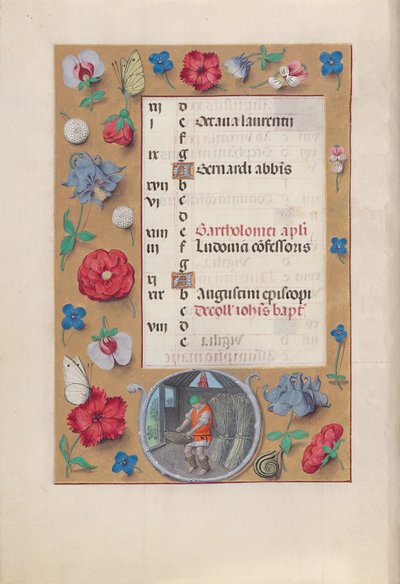 xii d
i e Octaua laurentii
f
ix g
A Bernardi abbis
xvii b
vi c
d
xiiii e Bartholomei apli
iii f Ludouici cōfessoris
g
xi A
xix b Augustini episcopi
c Decoll iohis bapt
viii d
e